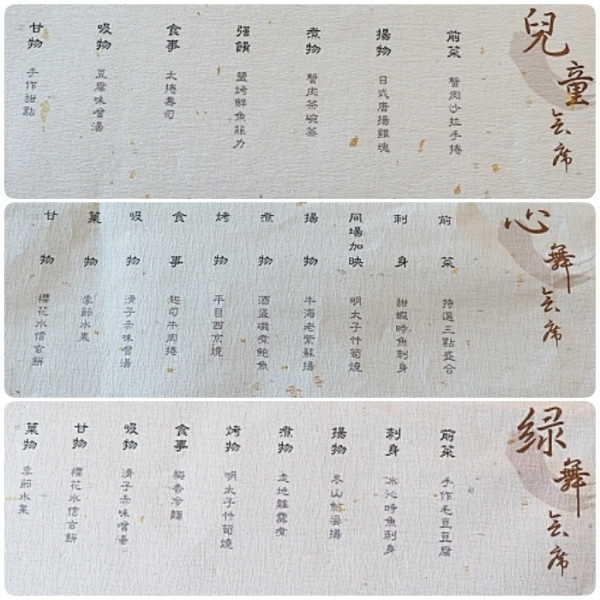 兒童会席
前菜 蟹肉沙拉手捲
揚物 日式唐揚雞塊
煮物 蟹肉茶碗蒸
強餚 鹽烤鮮魚菲力
食事 太捲壽司
吸物 豆腐味噌湯
甘物 手作甜點
心舞会席
前菜 特選三點盛合
刺身 甜蝦時魚刺身
同場加映 明太子竹筍燒
揚物 牛海老紫蘇揚
煮物 酒盜磯煮鮑魚
烤物 平目西京燒
食事 起司牛肉捲
吸物 清子柔味噌湯
菓物 季節水菓
甘物 櫻花水信玄餅
綠舞会席
前菜 手作毛豆豆腐
刺身 冰沁時魚刺身
揚物 冬山
煮物 走地雞霧煮
烤物 明太子竹筍燒
食事 梅香冷麵
吸物 清子柔味噌湯
甘物 櫻花水信玄餅
菓物 季節水菓